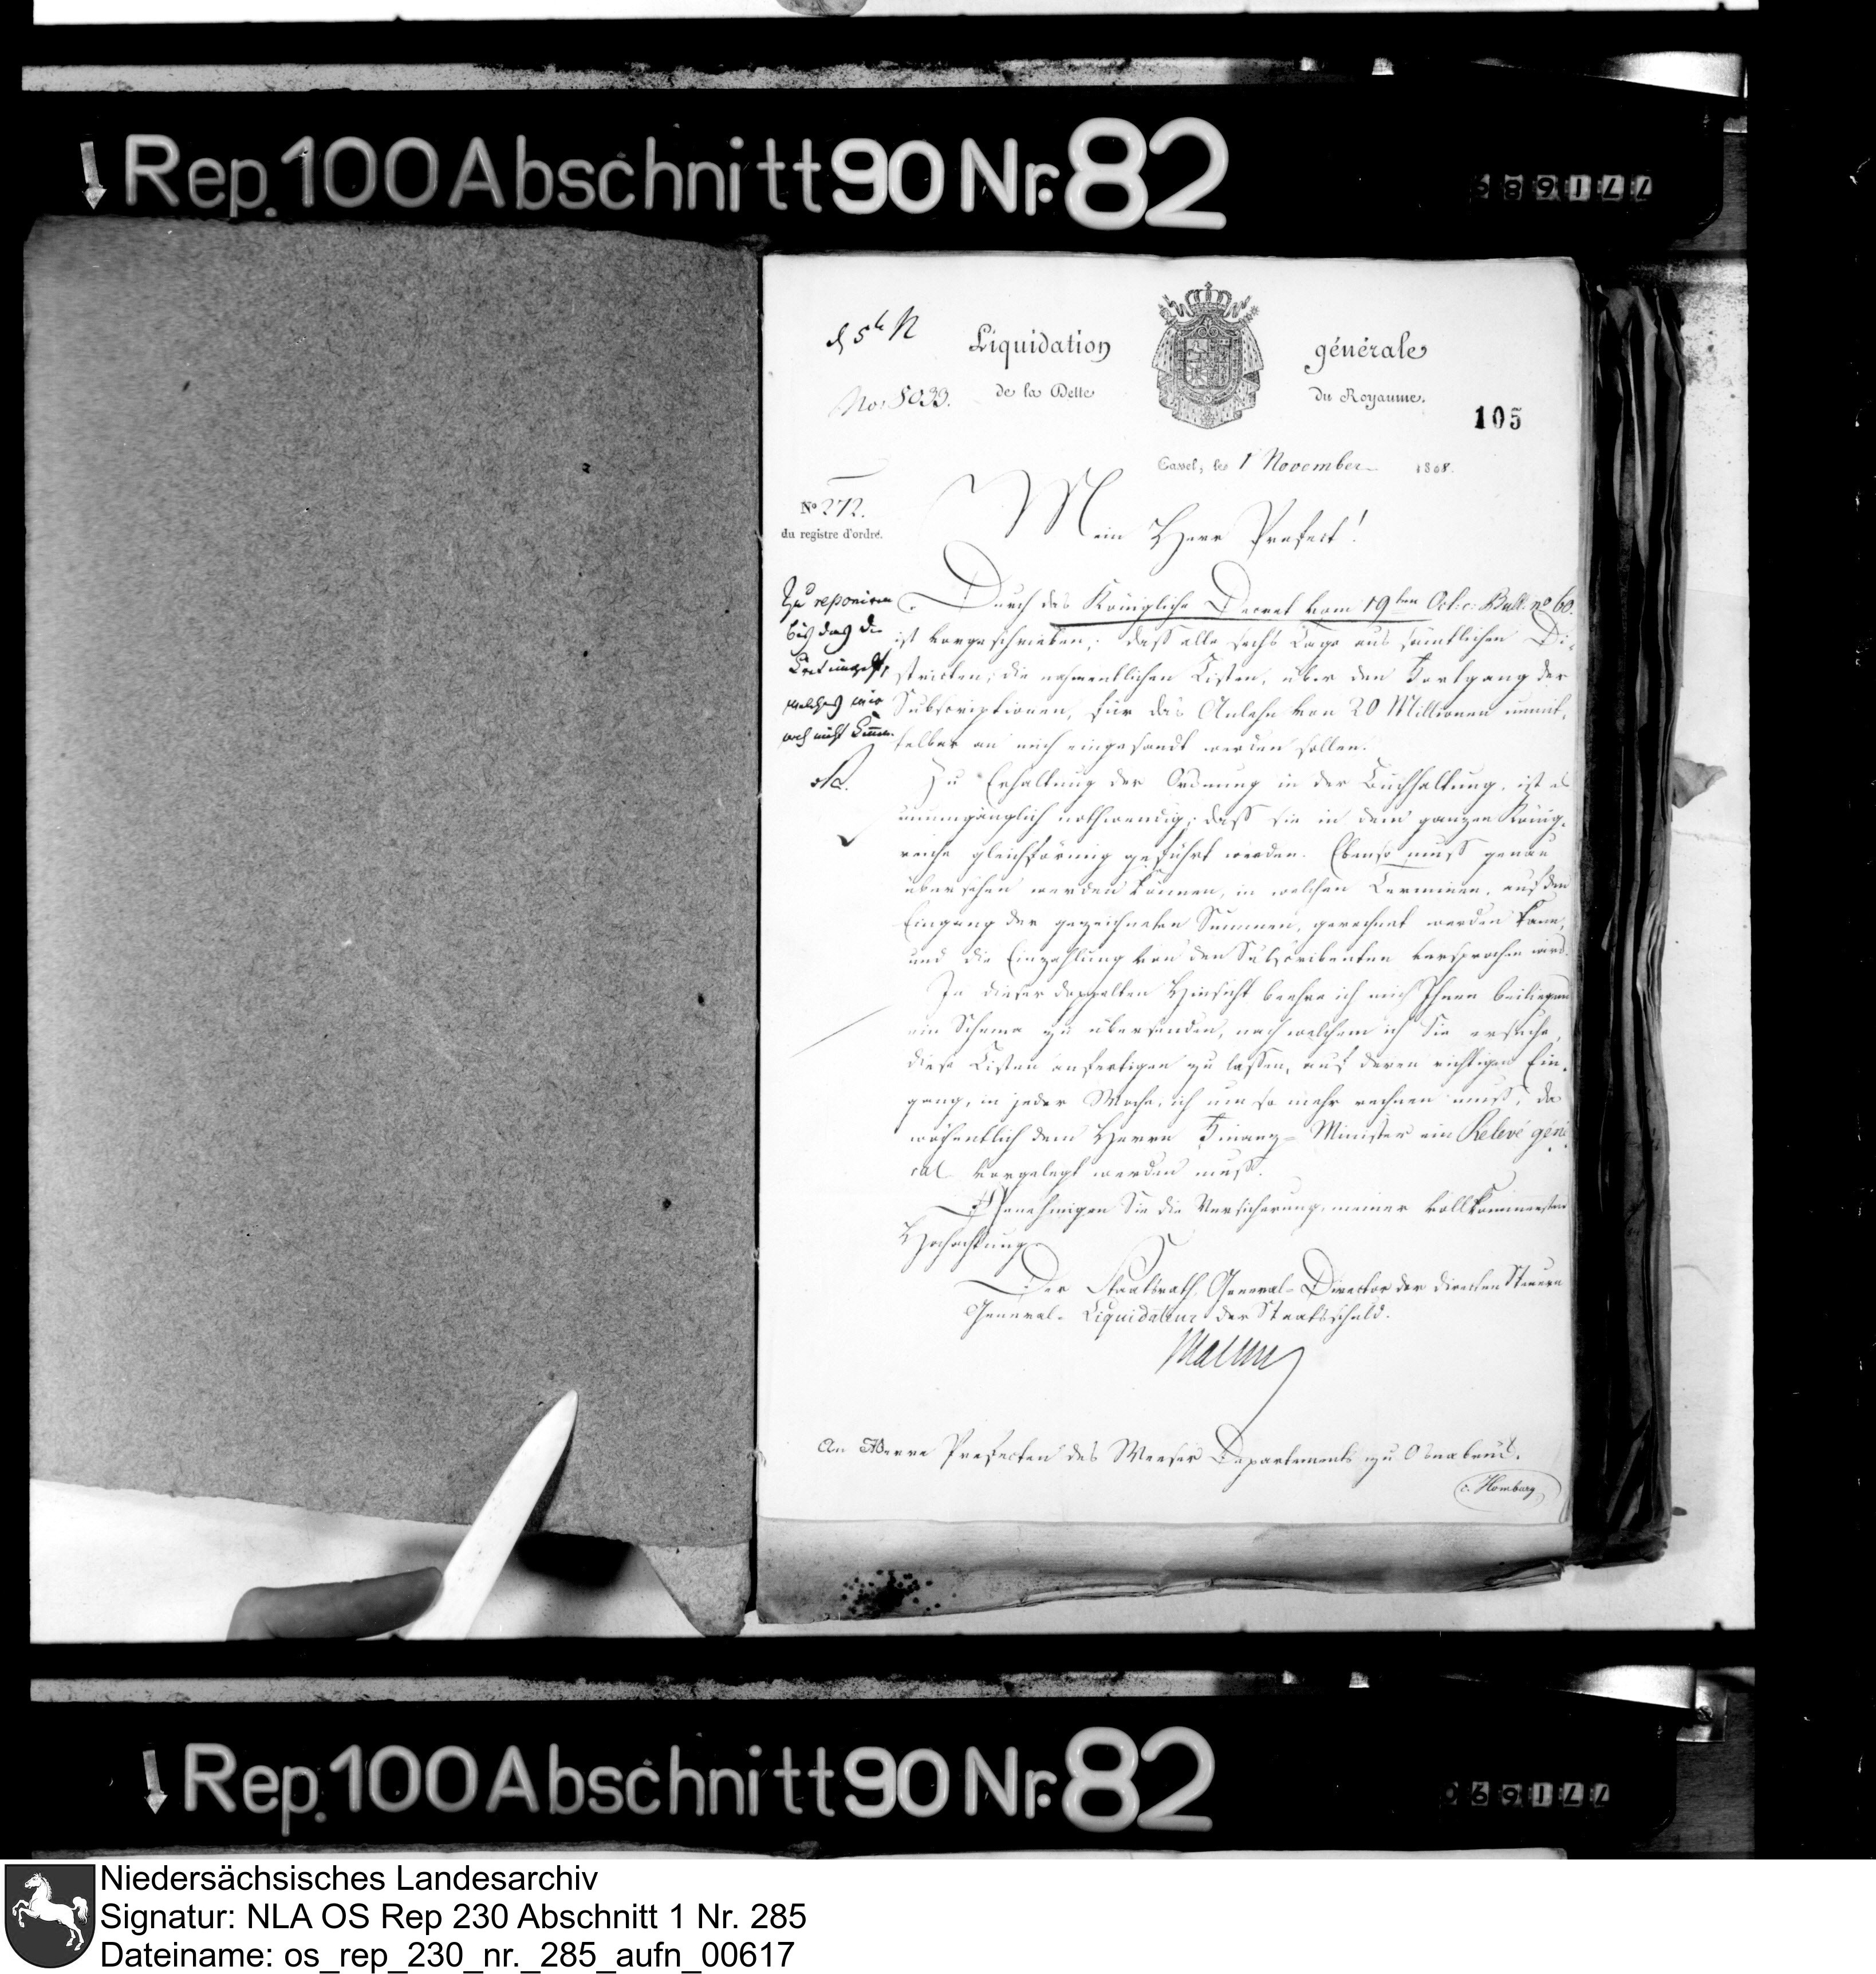 Rep. 100 Abschnitt 90 Nr. 82
771689
No: 5033.
Liquidation générale
de la Dette du Royaume.
105
Cassel, le 1 November 1808.
No 272.
du registre d'ordre.
Mein Herr Prefect!
Durch das Königliche Decret vom 19ten Oct: c: Bull: no 60.
ist vorgeschrieben, daß alle sechs Tage aus sämtlichen Di-
stricten, die nahmentlichen Listen, über den Fortgang der
Subscriptionen, für das Anlehn von 20 Millionen unmit-
telbar an mich eingesandt werden sollen.
Zu reponiren
bis daß die
welches mir
noch nicht
Zu Erhaltung der Ordnung in der Buchhaltung, ist es
unumgänglich nothwendig, daß sie in dem ganzen König-
reiche gleichförmig geführt werden. Ebenso muß genau
übersehen werden können, in welchen Terminen, auf den
Eingang der gezeichneten Summen, gerechnet werden kann,
und die Einzahlung von den Subscribenten versprochen wird.
In dieser doppelten Hinsicht beehre ich mich Ihnen beiliegend
ein Schema zu übersenden, nach welchem ich Sie ersuche,
diese Listen anfertigen zu lassen, auf deren richtigen Ein-
gang, in jeder Woche, ich um so mehr rechnen muß, da
wöchentlich dem Herrn Finanz-Minister ein Relevé géné-
ral vorgelegt werden muß.
Genehmigen Sie die Versicherung, meiner vollkommensten
Hochachtung.
Der Staatsrath, General-Director der directen Steuern
General-Liquidateur der Staatsschuld.
Malchus
An Herrn Prefecten des Weser Departements zu Osnabrück.
c. Homburg
Rep. 100 Abschnitt 90 Nr. 82
771690
Niedersächsisches Landesarchiv
Signatur: NLA OS Rep 230 Abschnitt 1 Nr. 285
Dateiname: os_rep_230_nr._285_aufn_00617